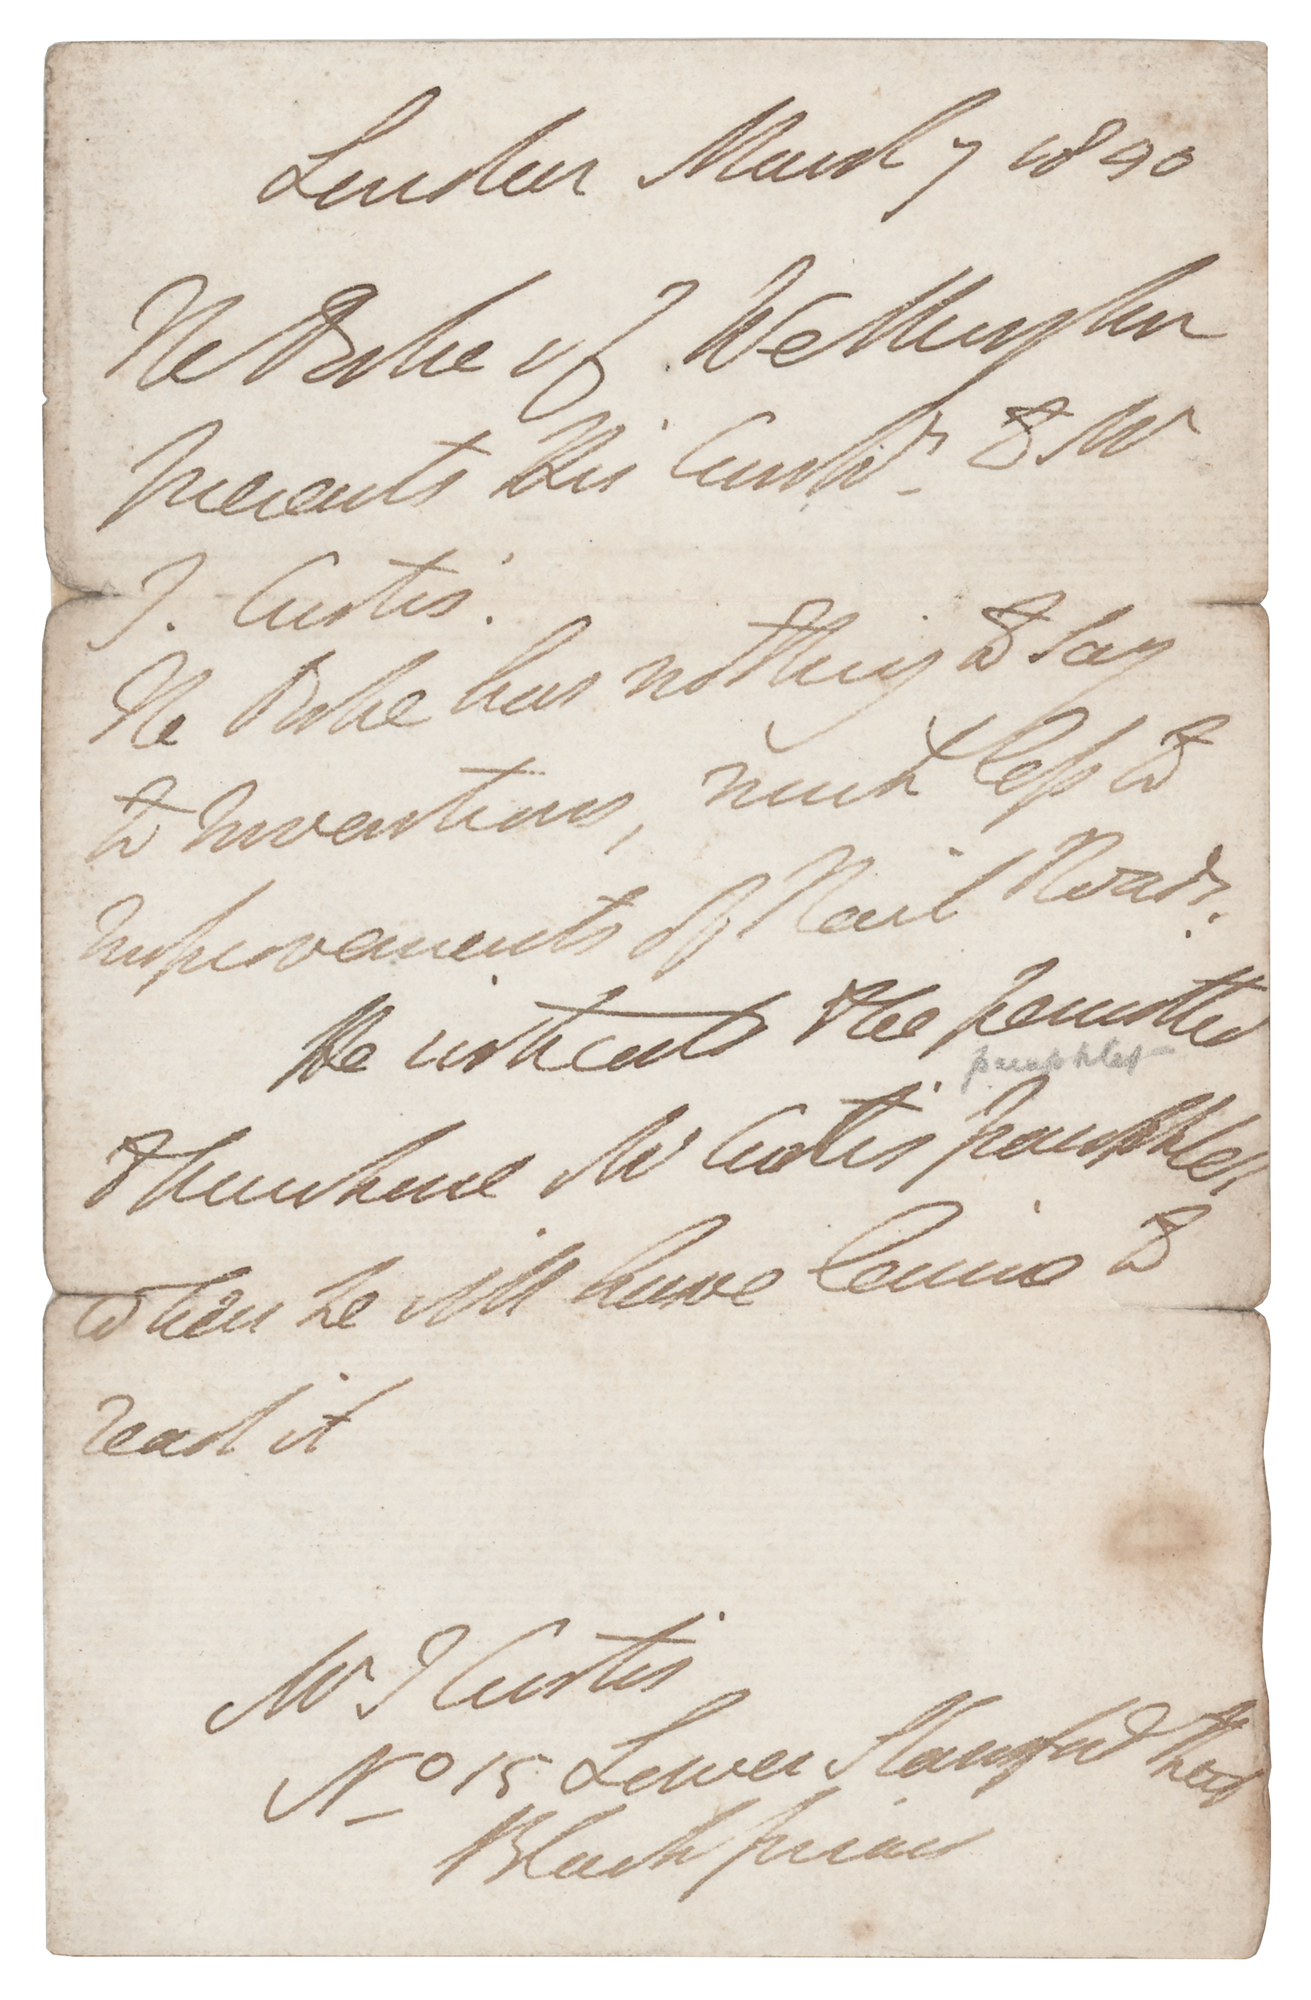 London March 7 1840
The Duke of Wellington
presents His Comp.ts to Mr
J. Curtis.
The Duke has nothing to say
to Inventions, much less to
Improvements of Rail Roads.
He intreats to be permitted
pamphlet
to return Mr Curtis' pamphlet
when he will have leisure to
read it
Mr J Curtis
No 15 Lower Stamford Street
Blackfriars